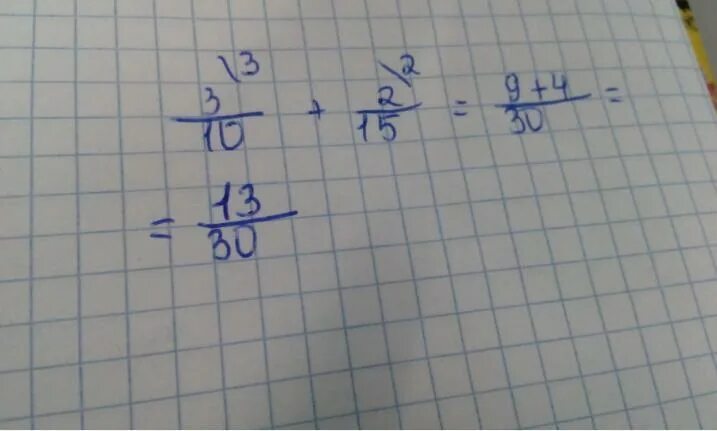 3\3/10 + 2\2/15 = 9+4/30 =
= 13/30